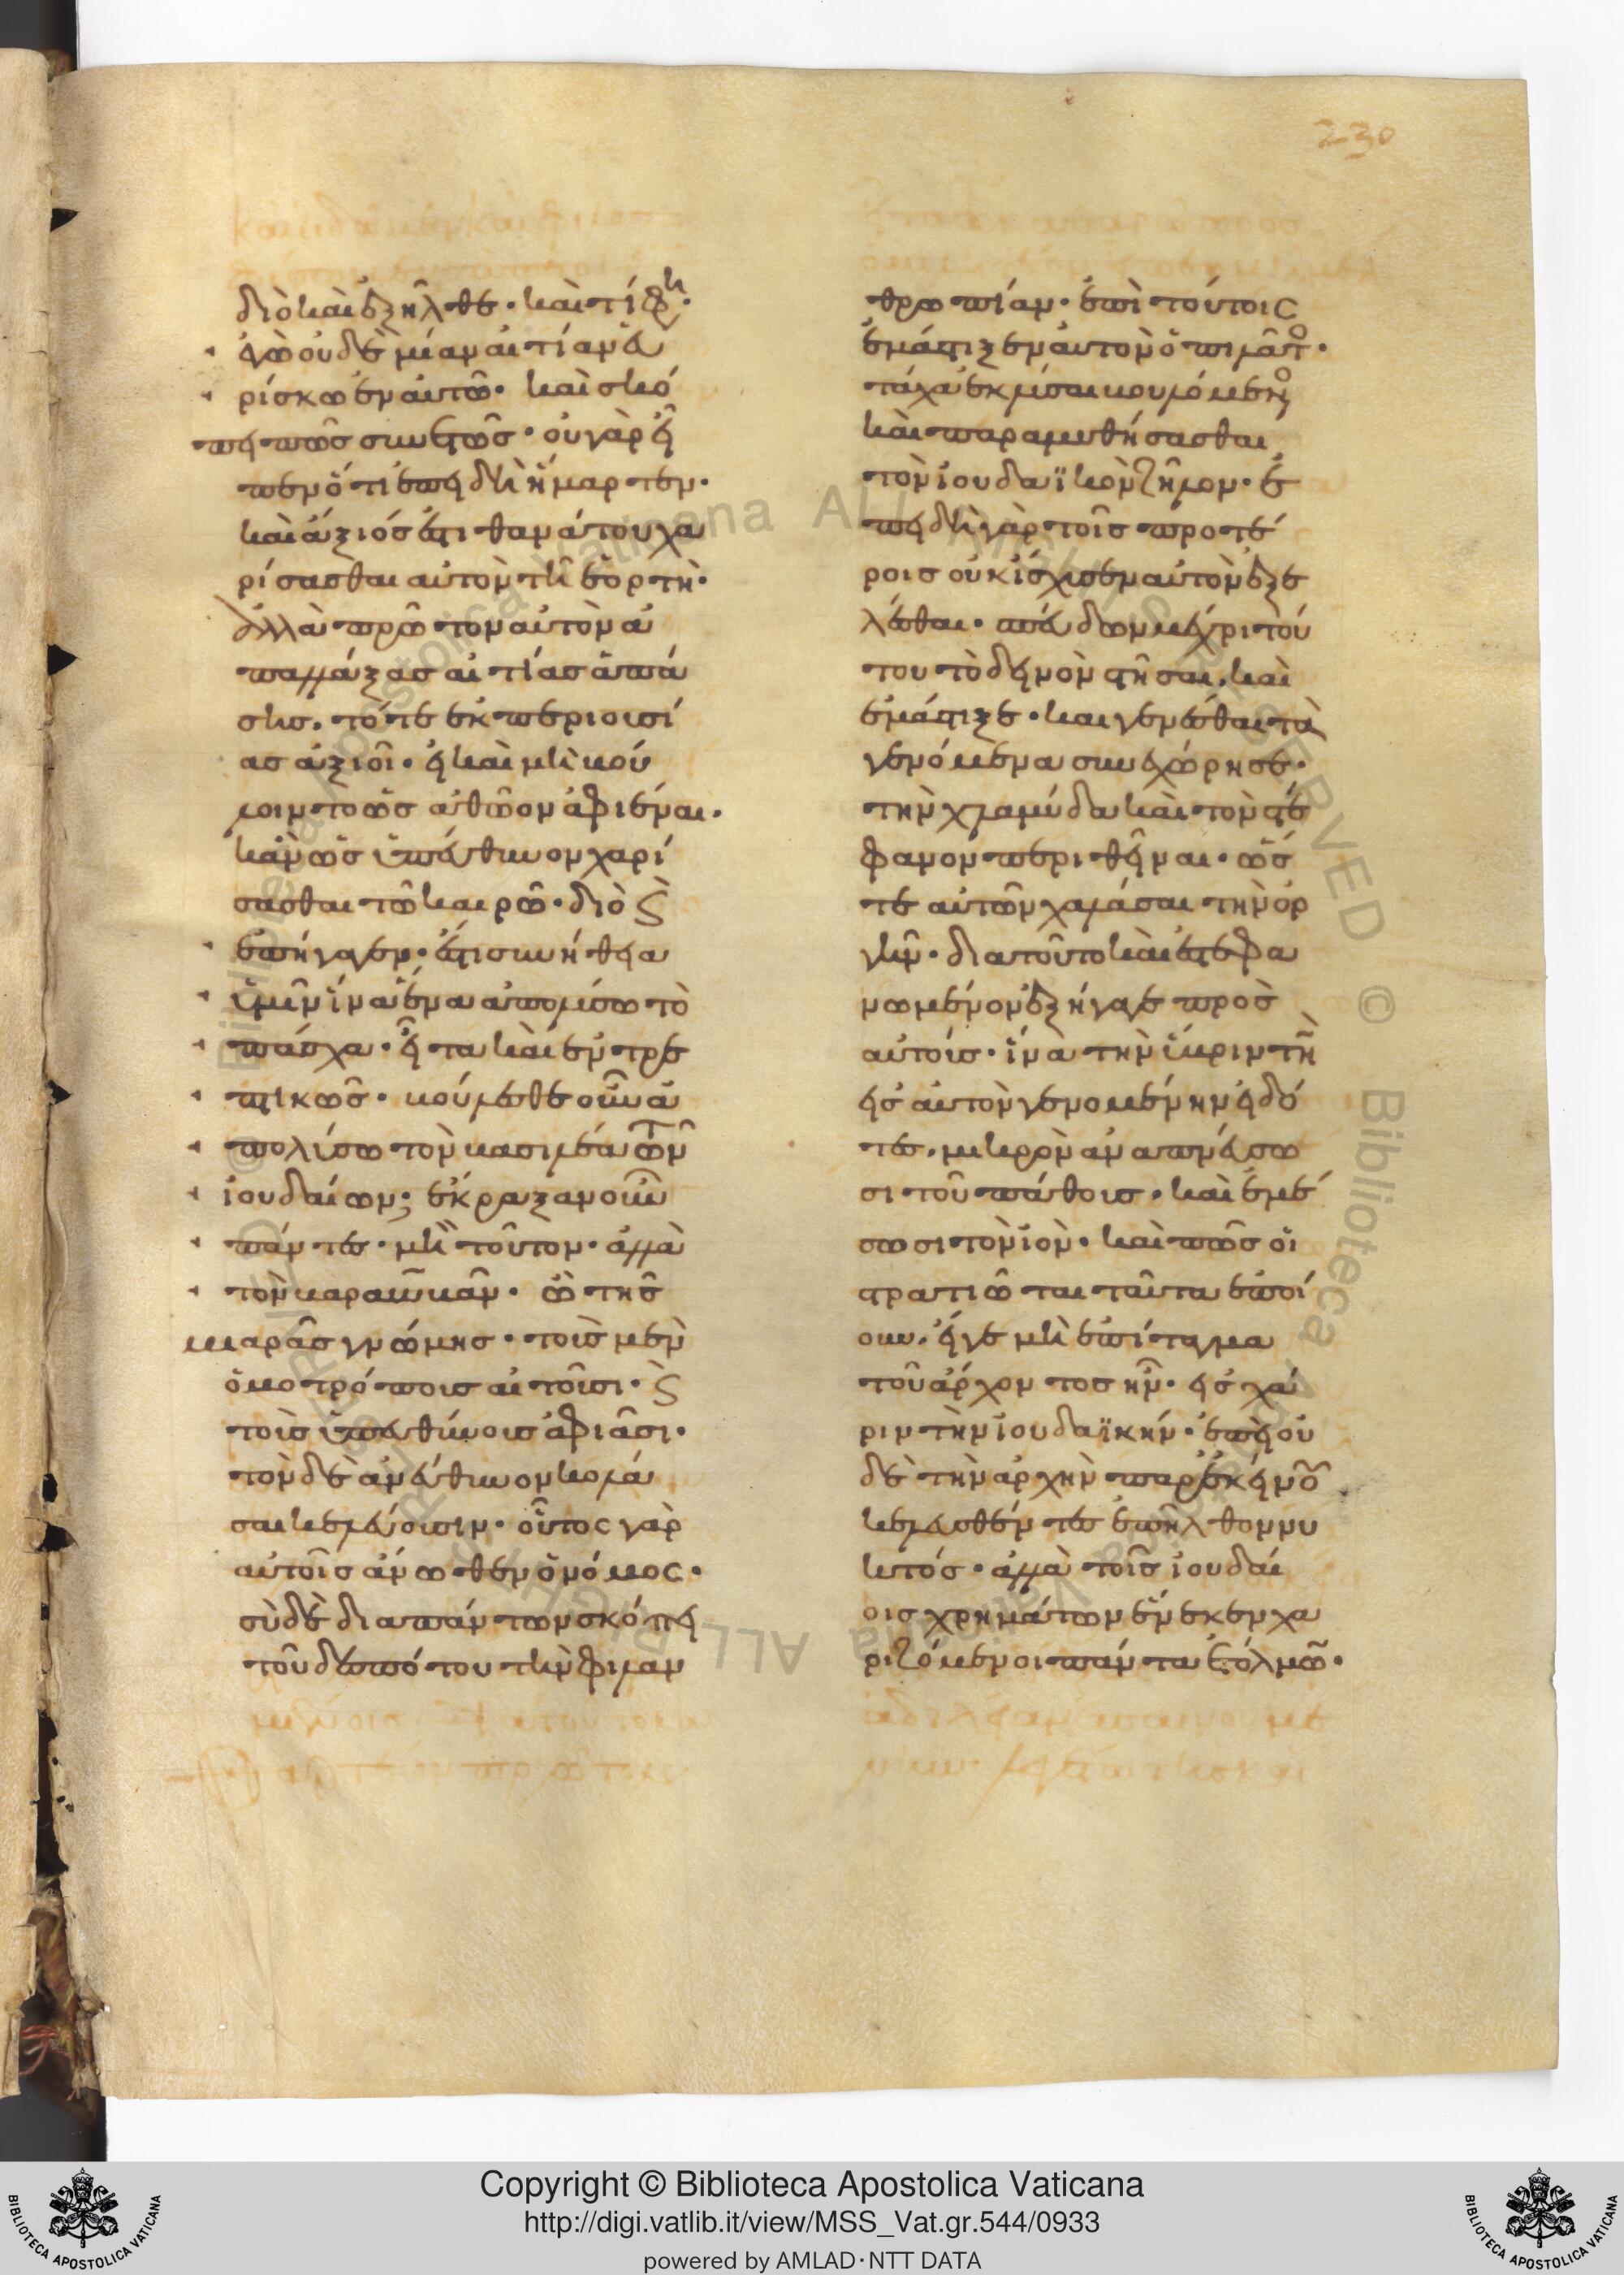 230
διὸ καὶ ἐξῆλθε· καὶ τί φη·
ἐγὼ οὐδὲ μίαν αἰτίαν εὑ
ρίσκω ἐν αὐτῶ· καὶ σκό
πει πῶς συνετῶς· οὐ γὰρ εἶ
πεν ὅτι ἐπειδὴ ἥμαρτεν·
καὶ ἄξιός ἐστι θανάτου χα
ρίσασθαι αὐτὸν τῆ ἑορτῆ·
ἀλλὰ πρῶτον αὐτὸν ἀ
παλλάξας αἰτίας ἁπά
σης. τότε ἐκ περιουσί
ας ἀξιοῖ· εἰ καὶ μὴ βού
λοιντο ὡς ἀθῶον ἀφιέναι·
κἂν ὡς ὑπεύθυνον χαρί
σασθαι τῶ καιρῶ· διὸ καὶ
ἐπήγαγεν· ἔστι συνήθεια
ὑμῖν ἵνα ἕνα ἀπολύσω τὸ
πάσχα· εἶτα καὶ ἐντρε
πτικῶς· βούλεσθε οὖν ἀ
πολύσω τὸν βασιλέα τῶν
ἰουδαίων; ἐκραξαν οὖν
πάντες· μὴ τοῦτον· ἀλλὰ
τὸν βαραββᾶν· ὢ τῆς
μιαρᾶς γνώμης· τοὺς μὲν
ὁμοτρόπους αἰτοῦσι· καὶ
τοὺς ὑπευθύνους ἀφιᾶσι·
τὸν δὲ ἀνεύθυνον κολά
σαι κελεύουσιν· οὗτος γὰρ
αὐτοῖς ἄνωθεν ὁ νόμος·
σὺ δὲ διαπάντων σκόπει
τοῦ δεσπότου τὴν φιλαν
θρωπίαν· ἐπὶ τούτοις
ἐμάστιξεν αὐτὸν ὁ πιλᾶτος·
τάχα ἐκλῦσαι βουλόμενος
καὶ παραμυθήσασθαι
τὸν ἰουδαϊκὸν ζῆλον· ἐ
πειδὴ γὰρ τοῖς προτέ
ροις οὐκ ἴσχυσεν αὐτὸν ἐξε
λέσθαι· σπεύδων μέχρι τού
του τὸ δεινὸν στῆσαι. καὶ
ἐμάστιξε· καὶ γενέσθαι τὰ
γενόμενα συνεχώρησε·
τὴν χλαμύδα καὶ τὸν στέ
φανον περιθεῖναι· ὥσ
τε αὐτῶν χαλάσαι τὴν ὀρ
γήν· διατοῦτο καὶ ἐστεφα
νωμένον ἐξήγαγε πρὸς
αὐτούς· ἵνα τὴν ὕβριν τὴν
εἰς αὐτὸν γενομένην εἰδό
τες. μικρὸν ἀναπνεύσω
σι τοῦ πάθους· καὶ ἐμέ
σωσι τὸν ἰὸν· καὶ πῶς οἱ
στρατιῶται ταῦτα ἐποί
ουν. εἴγε μὴ ἐπίταγμα
τοῦ ἄρχοντος ἦν· εἰς χά
ριν τὴν ἰουδαϊκήν· ἐπεὶ οὐ
δὲ τὴν ἀρχὴν παρ' ἐκείνου
κελευσθέντες ἐπῆλθον νυ
κτός· ἀλλὰ τοῖς ἰουδαί
οις χρημάτων ἕνεκεν χα
ριζόμενοι πάντα ἐτόλμων·
Copyright © Biblioteca Apostolica Vaticana
http://digi.vatlib.it/view/MSS_Vat.gr.544/0933
powered by AMLAD·NTT DATA
BIBLIOTECA APOSTOLICA VATICANA
BIBLIOTECA APOSTOLICA VATICANA